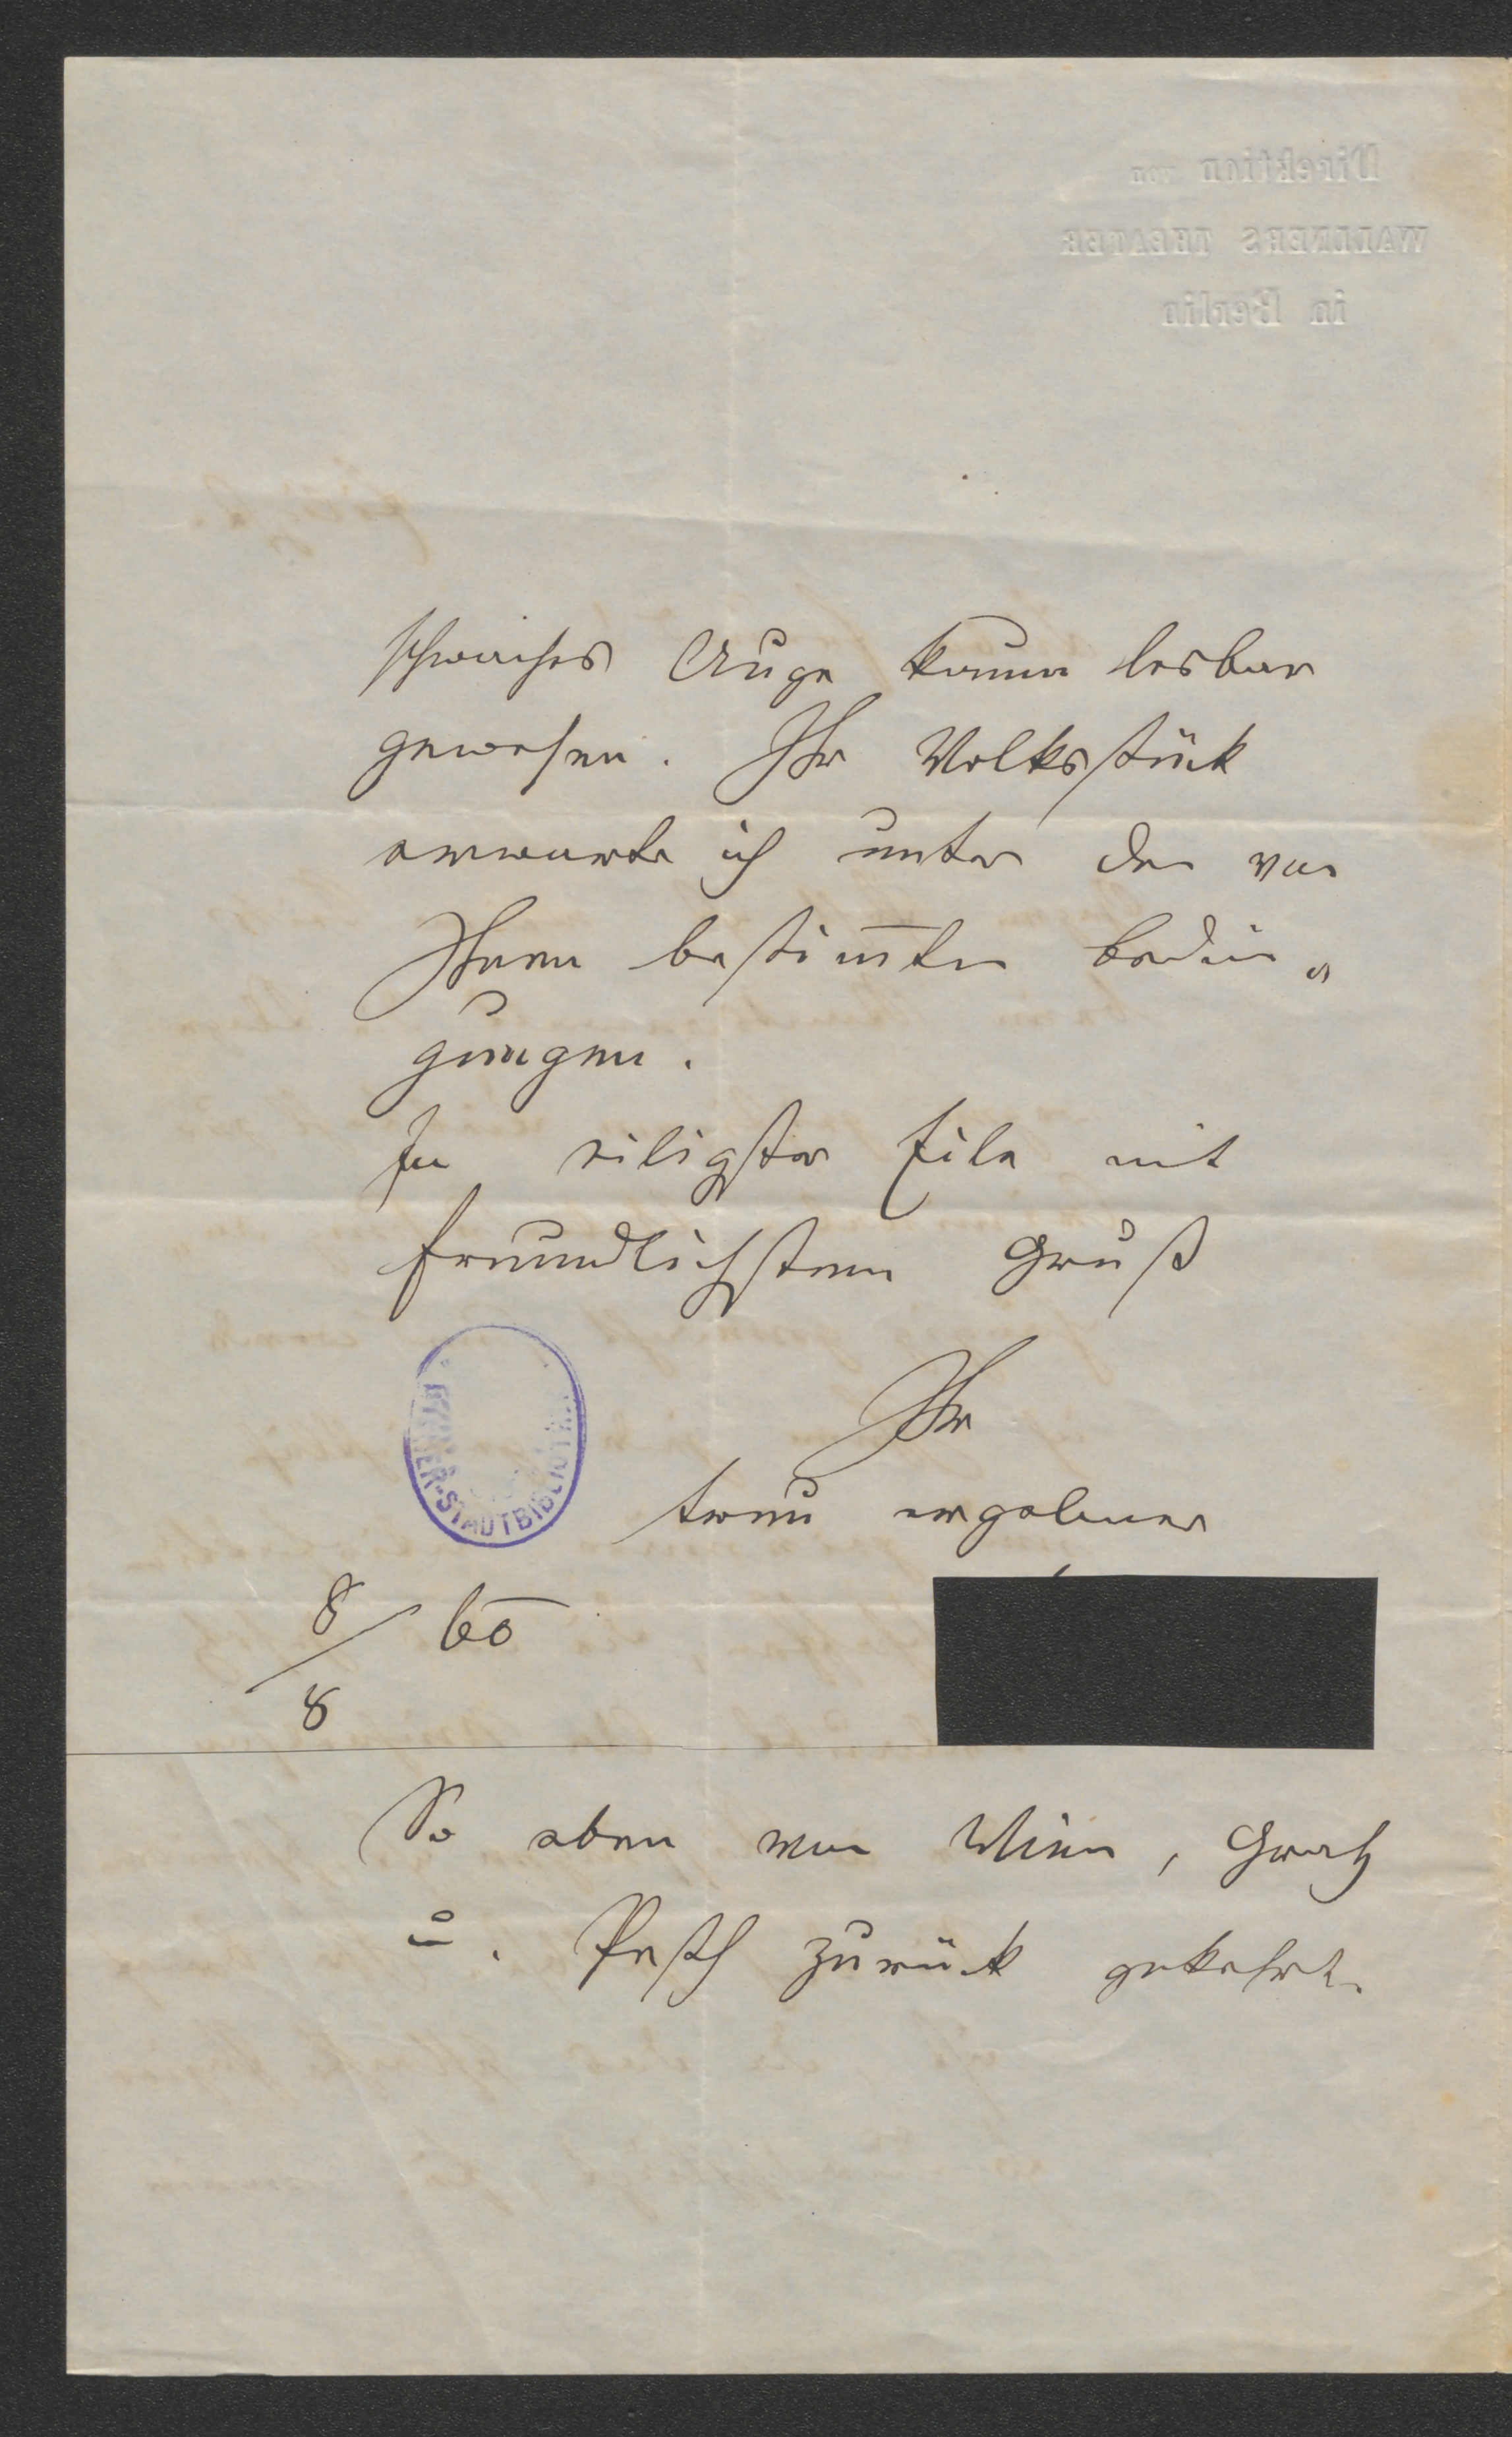 Direktion von
WALLNERS THEATER
in Berlin
schwaches Auge kaum lesbar
gewesen. Ihr Volksstück
erwarte ich unter den von
Ihnen bestim̄ten Bedin„
gungen.
In eiligster Eile mit
freundlichstem Gruß
Ihr
treu ergebener
8/8 60
So eben von Wien, Gratz
u. Pesth zurück gekehrt.